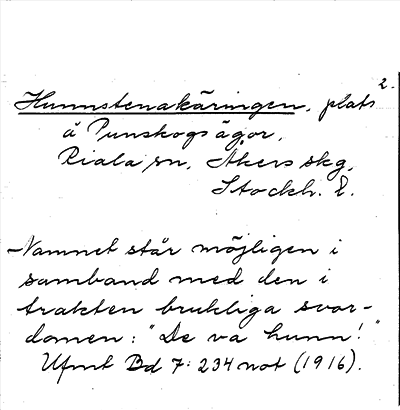 2.
Hunnstenakäringen, plats
å Punskogs ägor,
Riala sn, Åkers skg,
Stockh. l.
Namnet står möjligen i
samband med den i
trakten brukliga svor-
domen: "De va hunn!"
Ufmt Bd 7: 234 not (1916).